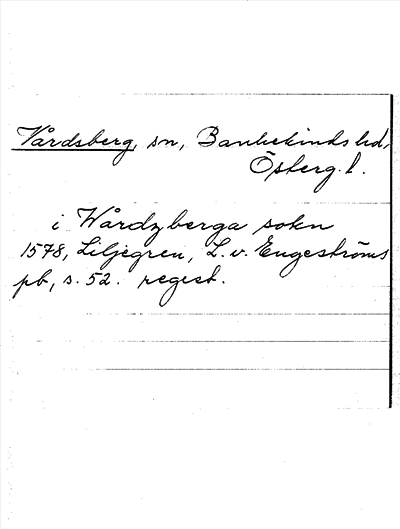 Vårdsberg, sn, Bankekinds hd,
Österg. l.
i Wårdzberga sokn
1578, Liljegren, L. v. Engeströms
pb, s. 52. regest.